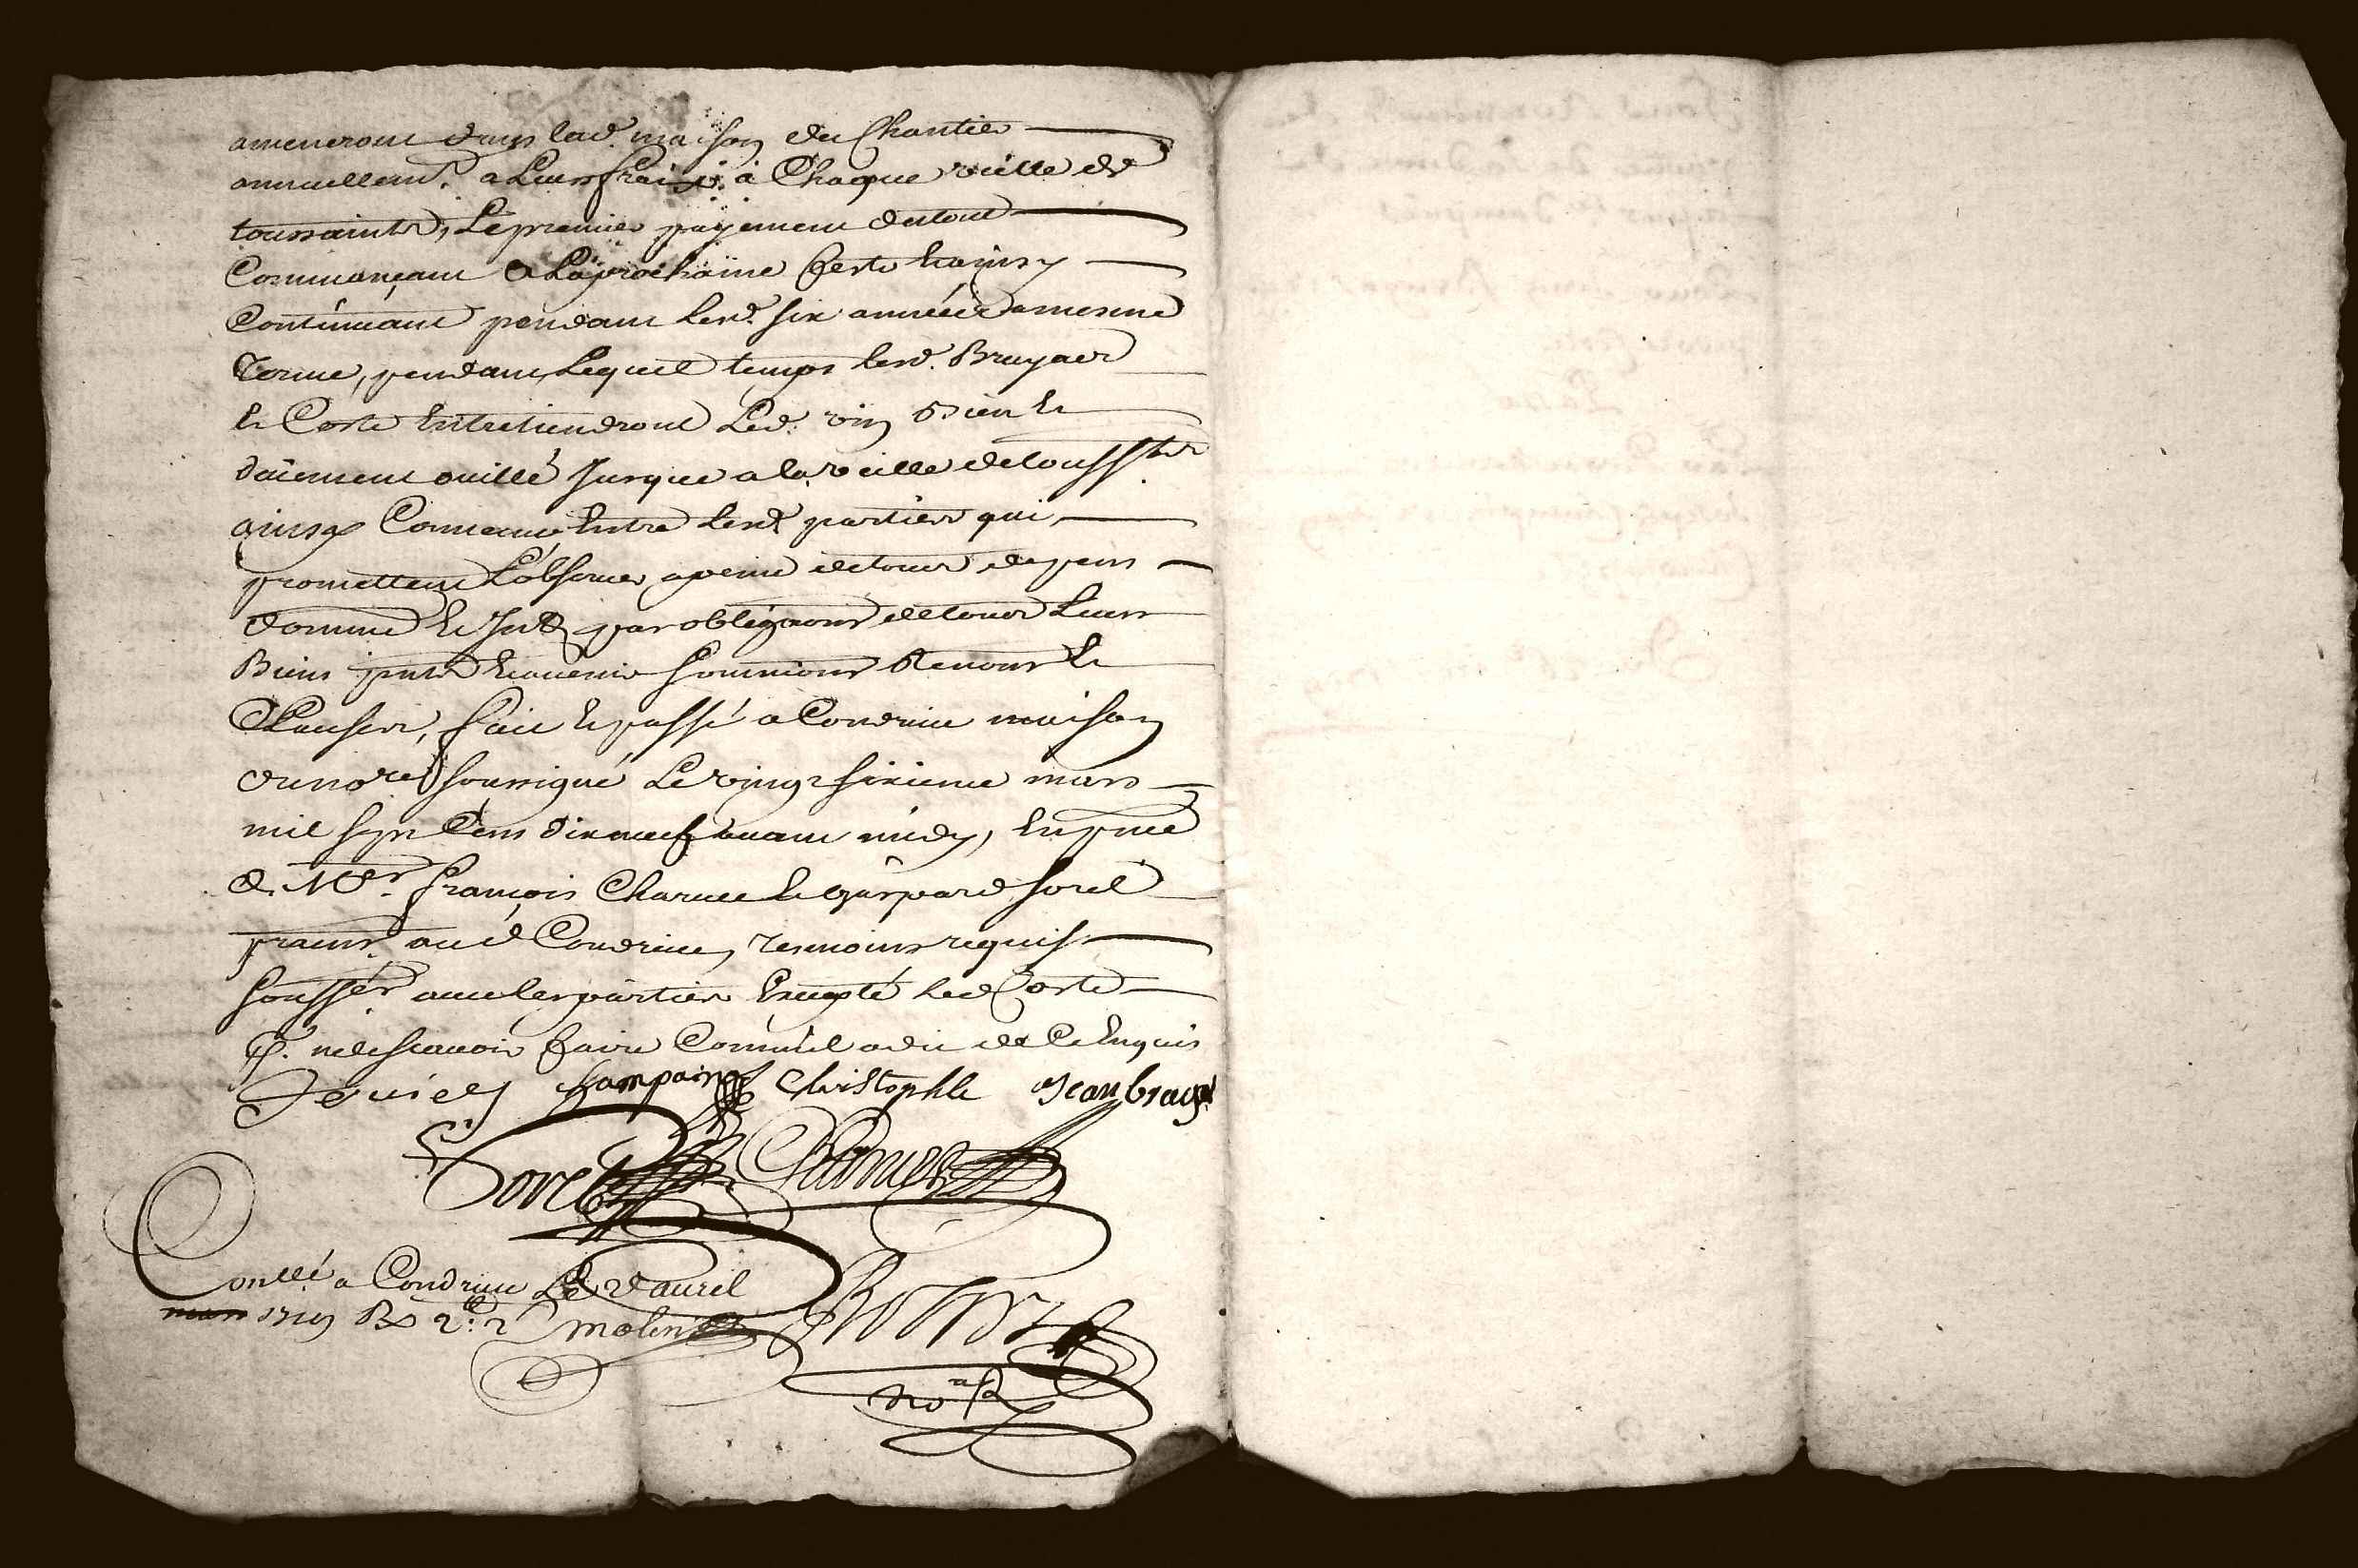 ameneront dans lad. maison du Chantier
annuellemt. a Leurs frais a Chaque veille de
toussaints, Le premier payement du tout
Commançant a La prochaine feste Et ainsy
Continuant pendant lesd. six années a mesme
Terme, pendant Lequel temps lesd. Bruyas
Et Coste Entretiendront Led. vin Bien Et
duëment ouillé Jusque a la veille de touss.ts
ainsy Convenu Entre lesd. parties qui
promettent L'obseruer a peine de tous depens
domme Et Jnts par obligaons de tous Leurs
Biens pnts Et auenir soumions Renons Et
Clauses, fait Et passé a Condrieu maison
du nore soussigné Le vingt sixieme mars
mil sept Cens dix neuf auant midy, En pnce
de Mes. françois Charuee Et Gaspard sorel
pratns. aud Condrieu, Tesmoins requis
soussés. auec les parties Excepté Led Coste
p. ne le scauoir faire Comm'il a dit de Ce Enquis
Christophle Jean bruyas
Sorel
Conllé a Condrieu Le 2e auril
mars 1719 Rx molin
nore